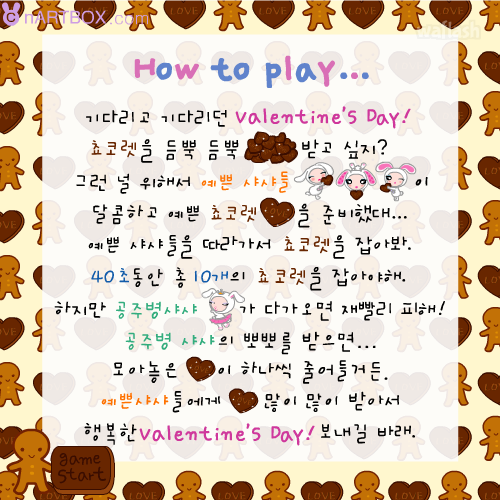 nARTBOX.com
waflash
How to play...
기다리고 기다리던 Valentine's Day!
쵸코렛을 듬뿍 듬뿍 받고 싶지?
그런 널 위해서 예쁜 샤샤들 이
달콤하고 예쁜 쵸코렛 을 준비했대...
예쁜 샤샤들을 따라가서 쵸코렛을 잡아봐.
40초동안 총 10개의 쵸코렛을 잡아야해.
하지만 공주병샤샤 가 다가오면 재빨리 피해!
공주병 샤샤의 뽀뽀를 받으면...
모아놓은 이 하나씩 줄어들거든.
예쁜샤샤들에게 많이 많이 받아서
행복한 Valentine's Day! 보내길 바래.
game
start